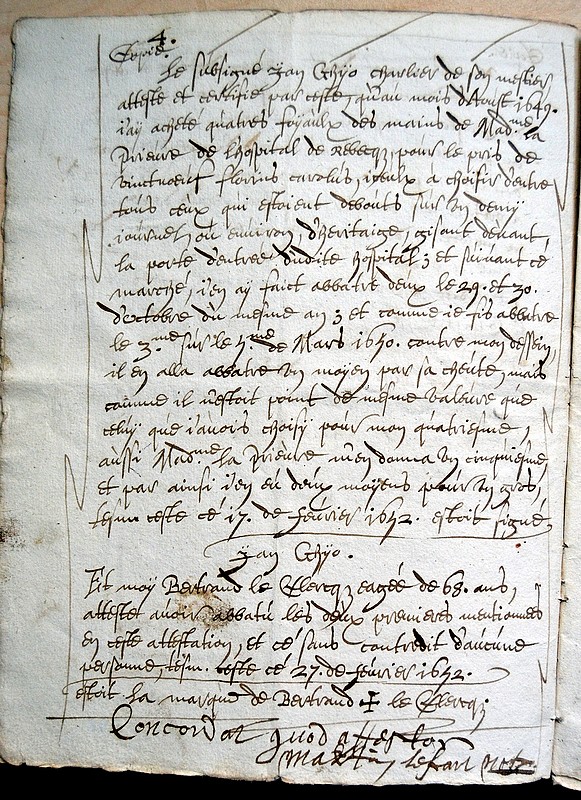 4.
Copie.
Le subsigné Jan Ghyo charlier de son mestier
atteste et certifie par ceste, qu'au mois d'Aoust 1649.
j'ay acheté quatres foyaulx des mains de Mad.me la
Prieure de l'hospital de Rebecq, pour le pris de
vinctnoeuf florins carolus, iceulx a choisir d'entre
tous ceux qui estoient debouts sur un demy
journel, ou environ, d'heritaige, gisant devant,
la porte d'entrée dudite hospital; et suivant ce
marché, j'en ay faict abbatre deux le 29. et 30.
d'octobre du mesme an; et comme ie fis abbatre
le 3.me sur le 5.me de Mars 1650. contre mon dessein,
il en alla abbatre un moyen par sa cheute, mais
comme il n'estoit point de mesme valeure que
celuy que j'avois choisy pour mon quatriesme,
aussi Mad.me la Prieure m'en donna un cinquiesme,
et par ainsi j'en eu deux moyens pour un gros,
tesm. ceste ce 17. de febvrier 1652. estoit signé,
Jan Ghyo.
Et moy Bertrand le Clercq, eagée de 68. ans,
attestet avoir abbatu les deux premieres mentionnées
en ceste attestation, et ce sans contredit d'aucune
personne, tesm. ceste ce 27. de febvrier 1652.
estoit la marque de Bertrand ✠ le Clercq;
Concordat quod attestor